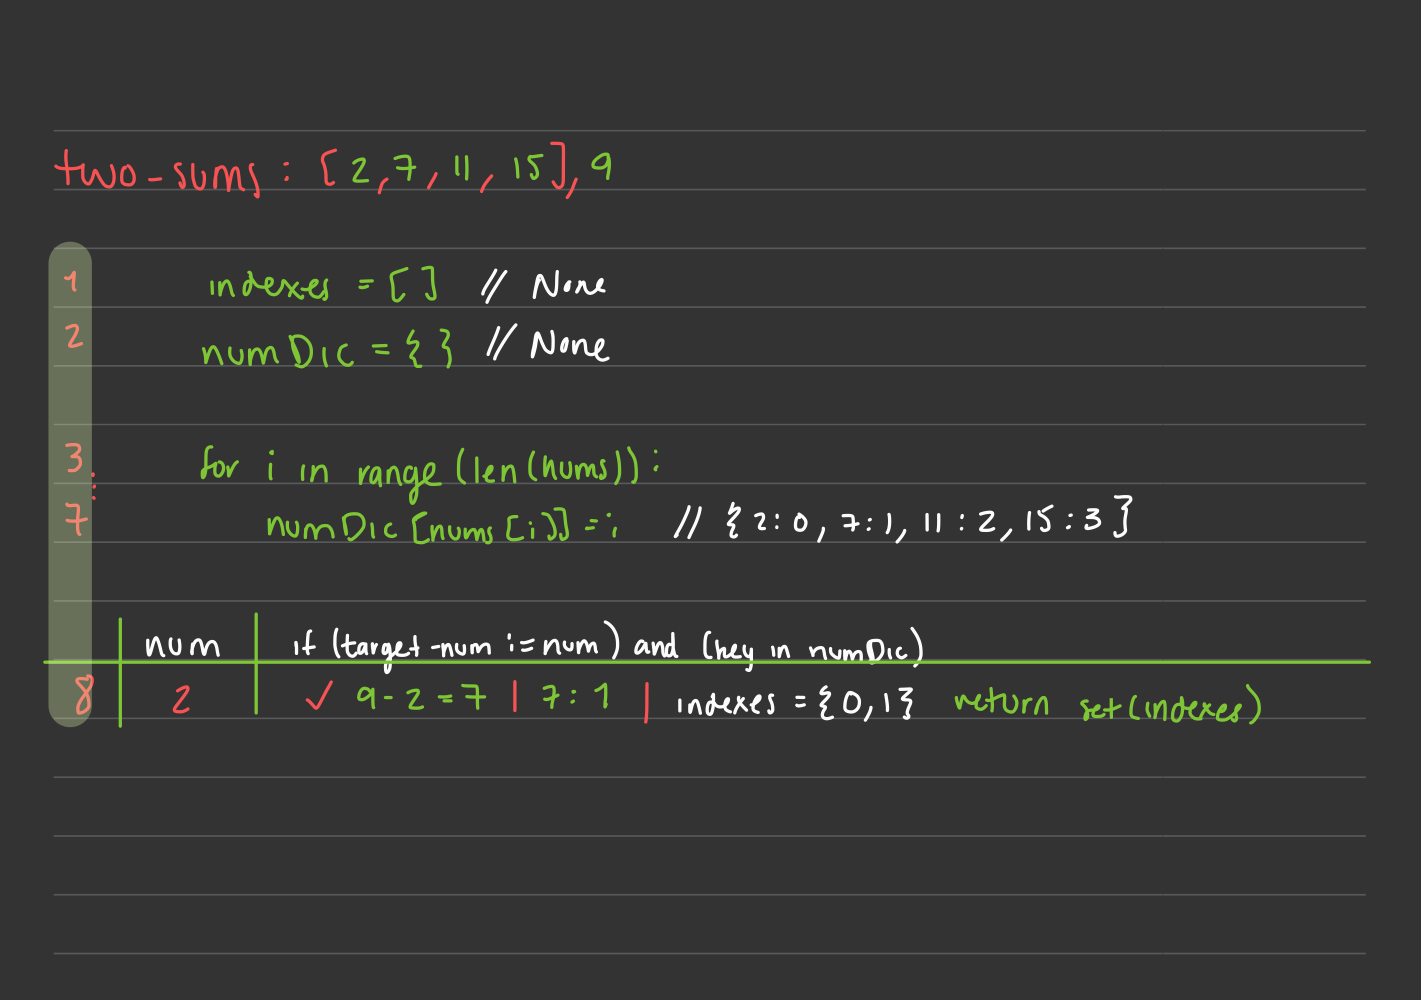 two-sums : [2,7, 11, 15], 9
1 indexes = [ ] // None
2 numDic = { } // None
3 for i in range (len (nums)) :
7 numDic [nums [i]] = i // { 2: 0, 7: 1, 11 : 2, 15 : 3 }
num | if (target-num != num) and (key in numDic)
8 | 2 | ✓ 9-2=7 | 7: 1 | indexes = {0,1} return set(indexes)